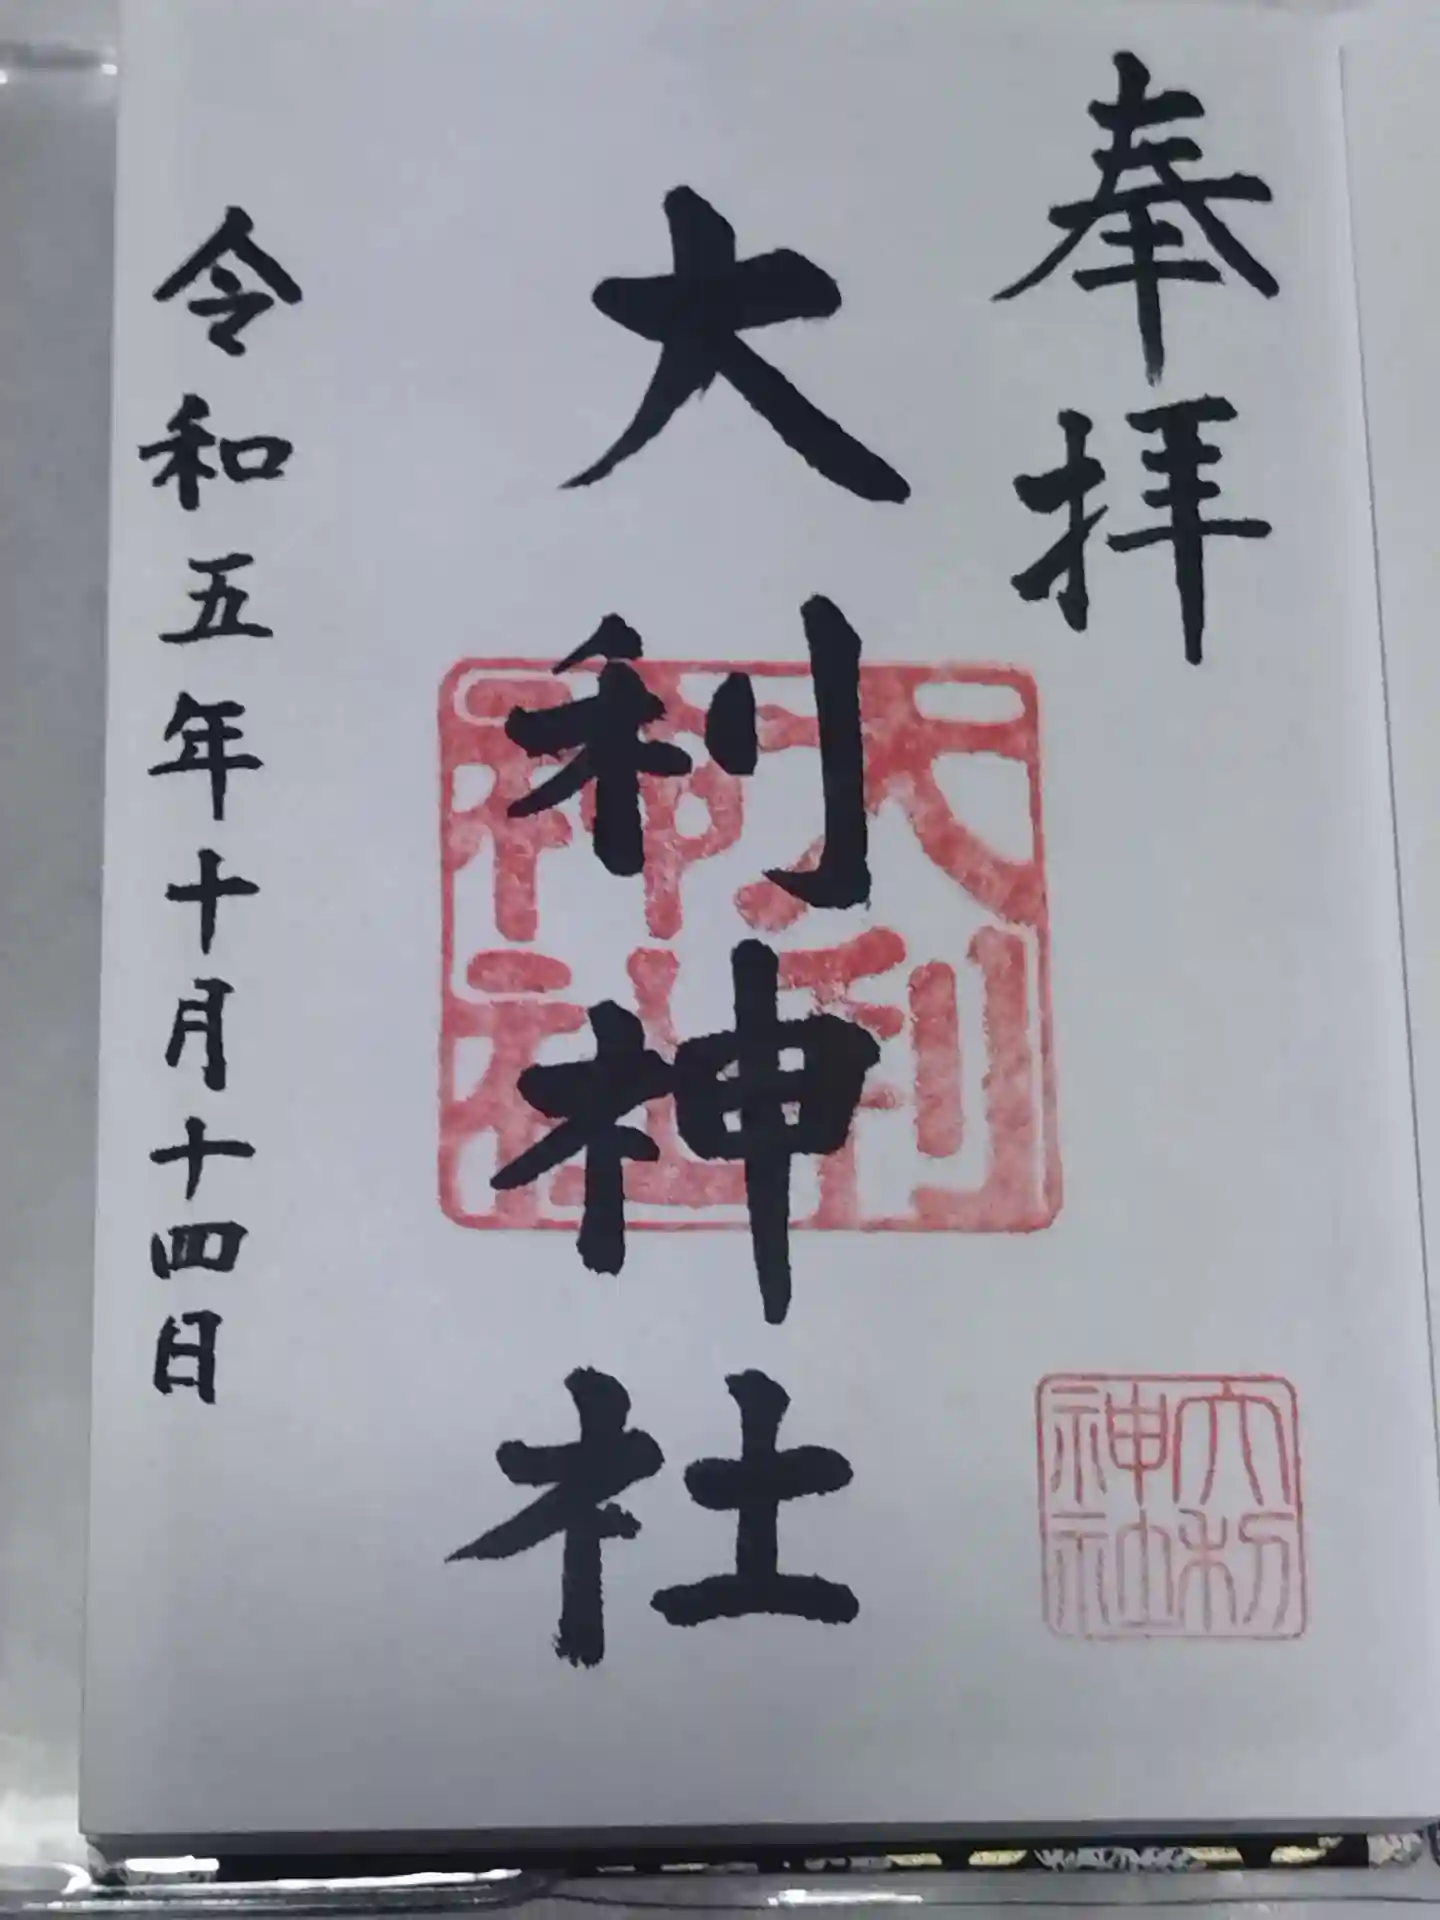 奉拝
大利神社
大利神社
大利神社
令和五年十月十四日